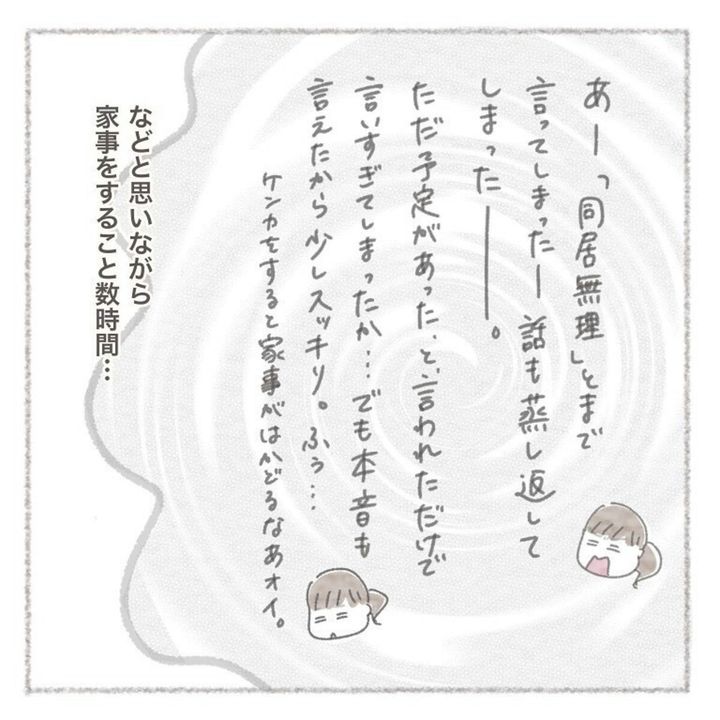 あー「同居無理」とまで
言ってしまったー話も蒸し返して
しまったーー。
ただ予定があった、と、言われただけで
言いすぎてしまったか…でも本音も
言えたから少しスッキリ。ふぅ…
ケンカをすると家事がはかどるなあオイ。
などと思いながら
家事をすること数時間…